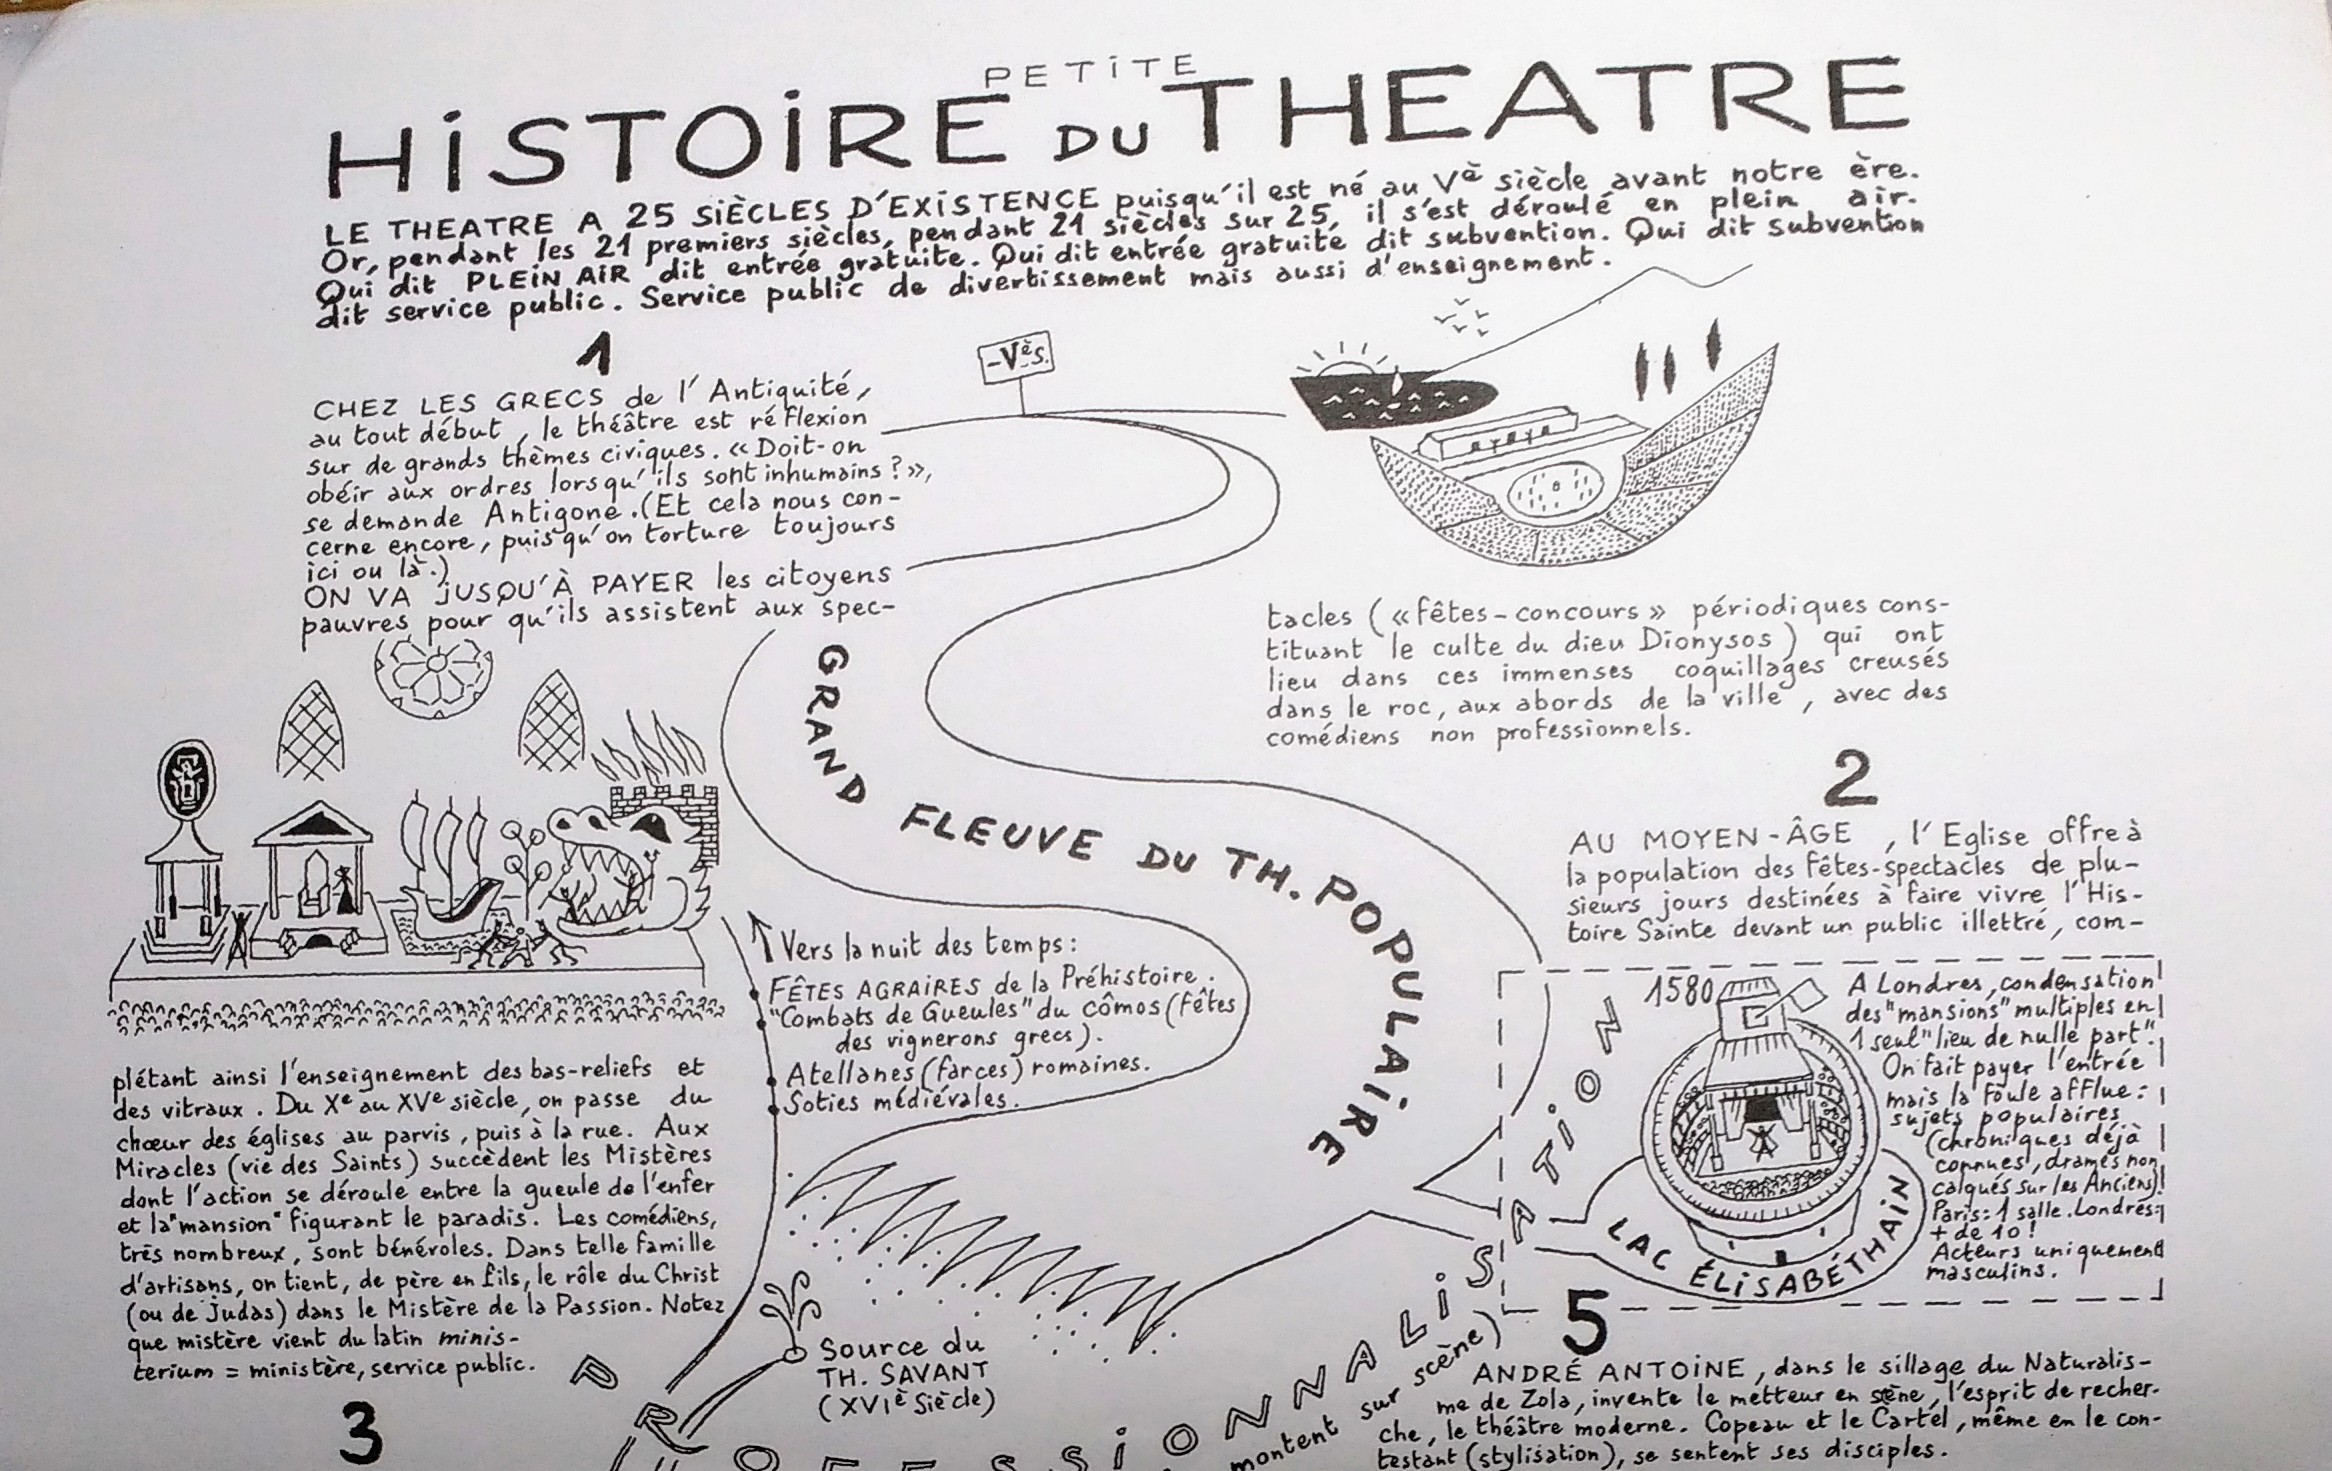 PETITE
HISTOIRE DU THEATRE
LE THEATRE A 25 SIÈCLES D'EXISTENCE puisqu'il est né au Vè siècle avant notre ère.
Or, pendant les 21 premiers siècles, pendant 21 siècles sur 25, il s'est déroulé en plein air.
Qui dit PLEIN AIR dit entrée gratuite. Qui dit entrée gratuite dit subvention. Qui dit subvention
dit service public. Service public de divertissement mais aussi d'enseignement.
1
CHEZ LES GRECS de l'Antiquité,
au tout début, le théâtre est réflexion
sur de grands thèmes civiques. « Doit-on
obéir aux ordres lorsqu'ils sont inhumains ? »,
se demande Antigone. (Et cela nous con-
cerne encore, puisqu'on torture toujours
ici ou là.)
ON VA JUSQU'À PAYER les citoyens
pauvres pour qu'ils assistent aux spec-
-Vè s.
tacles (« fêtes-concours » périodiques cons-
tituant le culte du dieu Dionysos) qui ont
lieu dans ces immenses coquillages creusés
dans le roc, aux abords de la ville, avec des
comédiens non professionnels.
GRAND FLEUVE DU TH. POPULAIRE
2
AU MOYEN-ÂGE, l'Eglise offre à
la population des fêtes-spectacles de plu-
sieurs jours destinées à faire vivre l'His-
toire Sainte devant un public illettré, com-
plétant ainsi l'enseignement des bas-reliefs et
des vitraux. Du Xe au XVe siècle, on passe du
chœur des églises au parvis, puis à la rue. Aux
Miracles (vie des Saints) succèdent les Mistères
dont l'action se déroule entre la gueule de l'enfer
et la "mansion" figurant le paradis. Les comédiens,
très nombreux, sont bénévoles. Dans telle famille
d'artisans, on tient, de père en fils, le rôle du Christ
(ou de Judas) dans le Mistère de la Passion. Notez
que mistère vient du latin minis-
terium = ministère, service public.
Vers la nuit des temps :
FÊTES AGRAIRES de la Préhistoire.
"Combats de Gueules" du cômos (fêtes
des vignerons grecs).
Atellanes (farces) romaines.
Soties médiévales.
Source du
TH. SAVANT
(XVIè Siècle)
3
PROFESSIONNALISATION
montent sur scène)
1580
A Londres, condensation
des "mansions" multiples en
1 seul "lieu de nulle part".
On fait payer l'entrée
mais la foule afflue :
sujets populaires
(chroniques déjà
connues, drames non
calqués sur les Anciens)
Paris: 1 salle. Londres:
+ de 10 !
Acteurs uniquement
masculins.
LAC ÉLISABÉTHAIN
5
ANDRÉ ANTOINE, dans le sillage du Naturalis-
me de Zola, invente le metteur en scène, l'esprit de recher-
che, le théâtre moderne. Copeau et le Cartel, même en le con-
testant (stylisation), se sentent ses disciples.